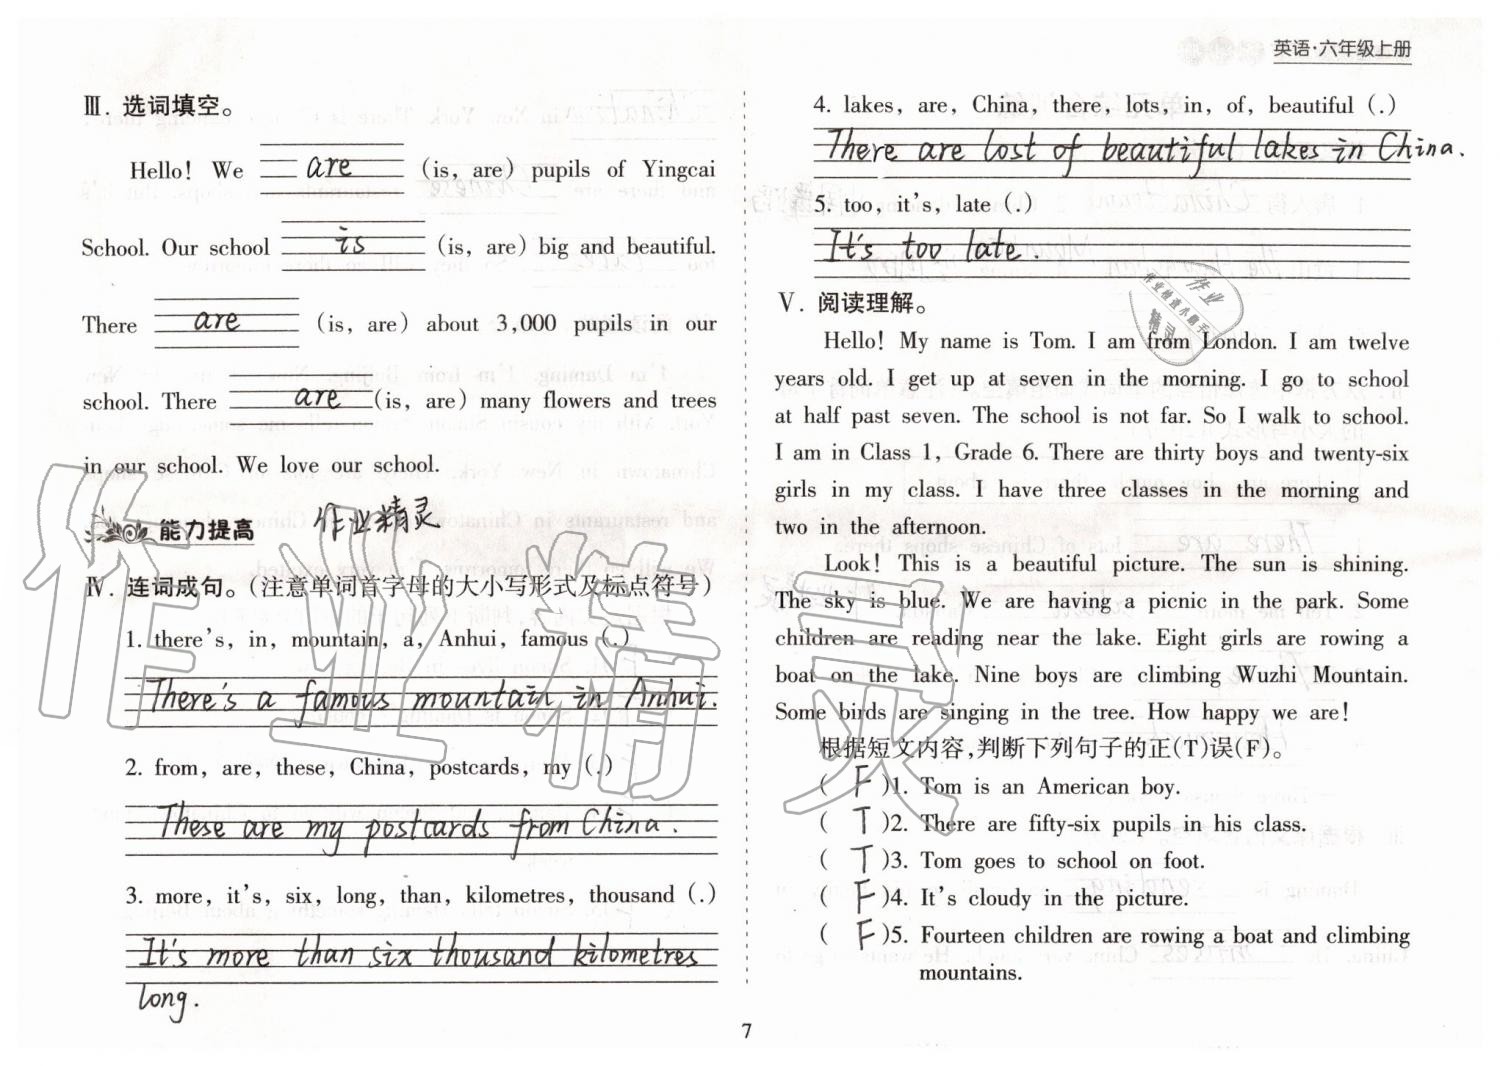 英语·六年级上册
Ⅲ. 选词填空。
Hello! We are (is, are) pupils of Yingcai
School. Our school is (is, are) big and beautiful.
There are (is, are) about 3,000 pupils in our
school. There are (is, are) many flowers and trees
in our school. We love our school.
能力提高 作业精灵
Ⅳ. 连词成句。(注意单词首字母的大小写形式及标点符号)
1. there's, in, mountain, a, Anhui, famous (.)
There's a famous mountain in Anhui.
2. from, are, these, China, postcards, my (.)
These are my postcards from China.
3. more, it's, six, long, than, kilometres, thousand (.)
It's more than six thousand kilometres
long.
4. lakes, are, China, there, lots, in, of, beautiful (.)
There are lost of beautiful lakes in China.
5. too, it's, late (.)
It's too late.
Ⅴ. 阅读理解。
Hello! My name is Tom. I am from London. I am twelve
years old. I get up at seven in the morning. I go to school
at half past seven. The school is not far. So I walk to school.
I am in Class 1, Grade 6. There are thirty boys and twenty-six
girls in my class. I have three classes in the morning and
two in the afternoon.
Look! This is a beautiful picture. The sun is shining.
The sky is blue. We are having a picnic in the park. Some
children are reading near the lake. Eight girls are rowing a
boat on the lake. Nine boys are climbing Wuzhi Mountain.
Some birds are singing in the tree. How happy we are!
根据短文内容,判断下列句子的正(T)误(F)。
( F )1. Tom is an American boy.
( T )2. There are fifty-six pupils in his class.
( T )3. Tom goes to school on foot.
( F )4. It's cloudy in the picture.
( F )5. Fourteen children are rowing a boat and climbing
mountains.
作业精灵
7